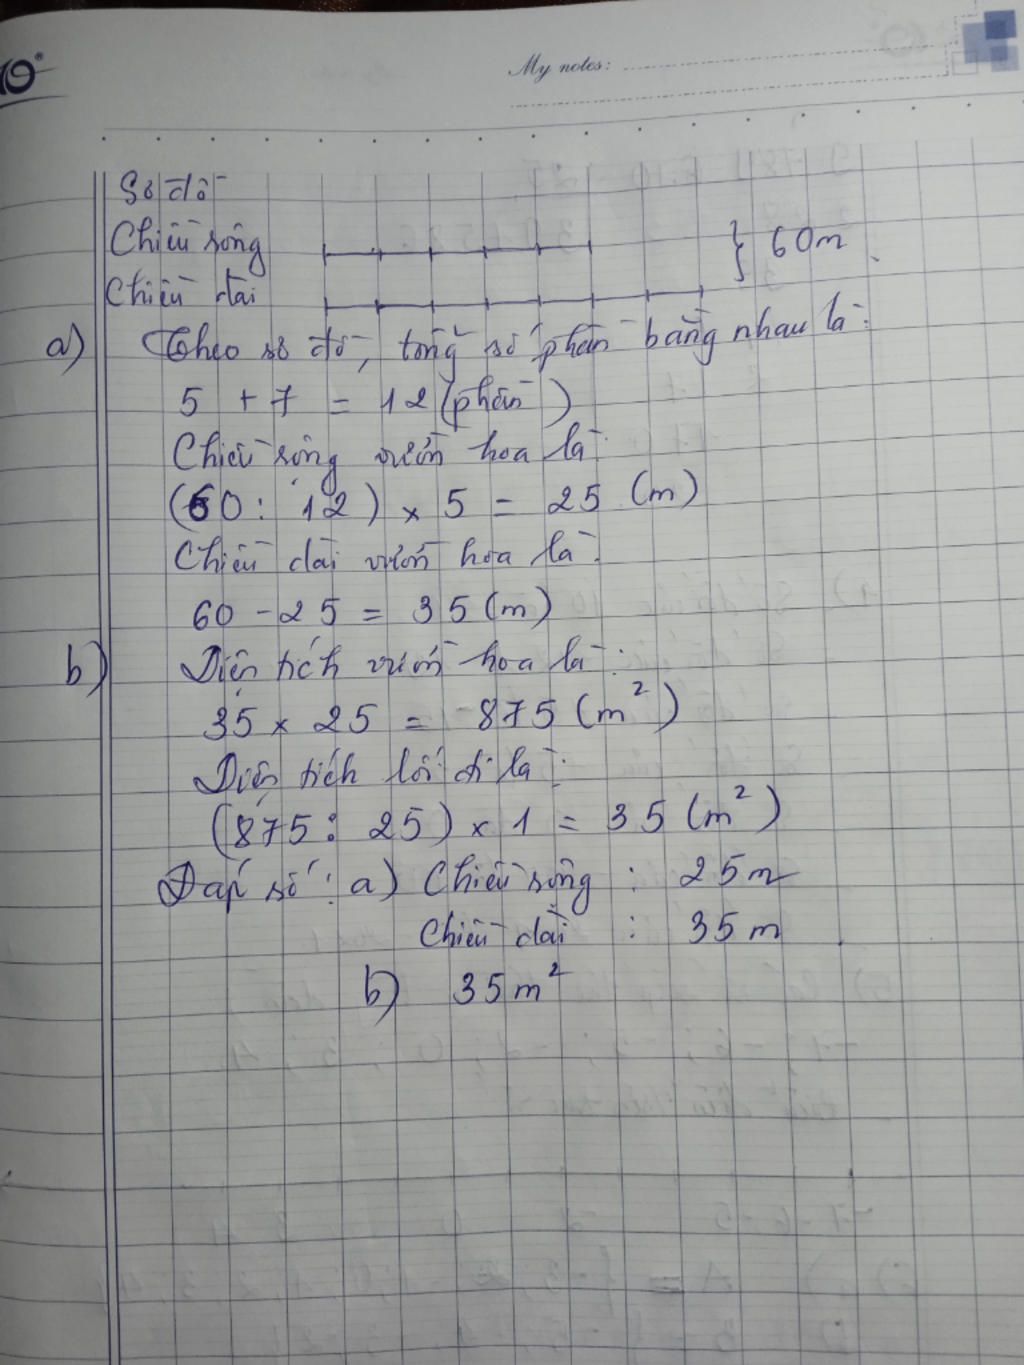 10
My notes:
Sơ đồ
Chiều rộng
60m
Chiều dài
a) Theo sơ đồ, tổng số phần bằng nhau là:
5 + 7 = 12 (phần)
Chiều rộng vườn hoa là:
(60 : 12) × 5 = 25 (m)
Chiều dài vườn hoa là:
60 - 25 = 35 (m)
b) Diện tích vườn hoa là:
35 × 25 = 875 (m²)
Diện tích lối đi là:
(875 : 25) × 1 = 35 (m²)
Đáp số : a) Chiều rộng : 25m
Chiều dài : 35m
b) 35m²